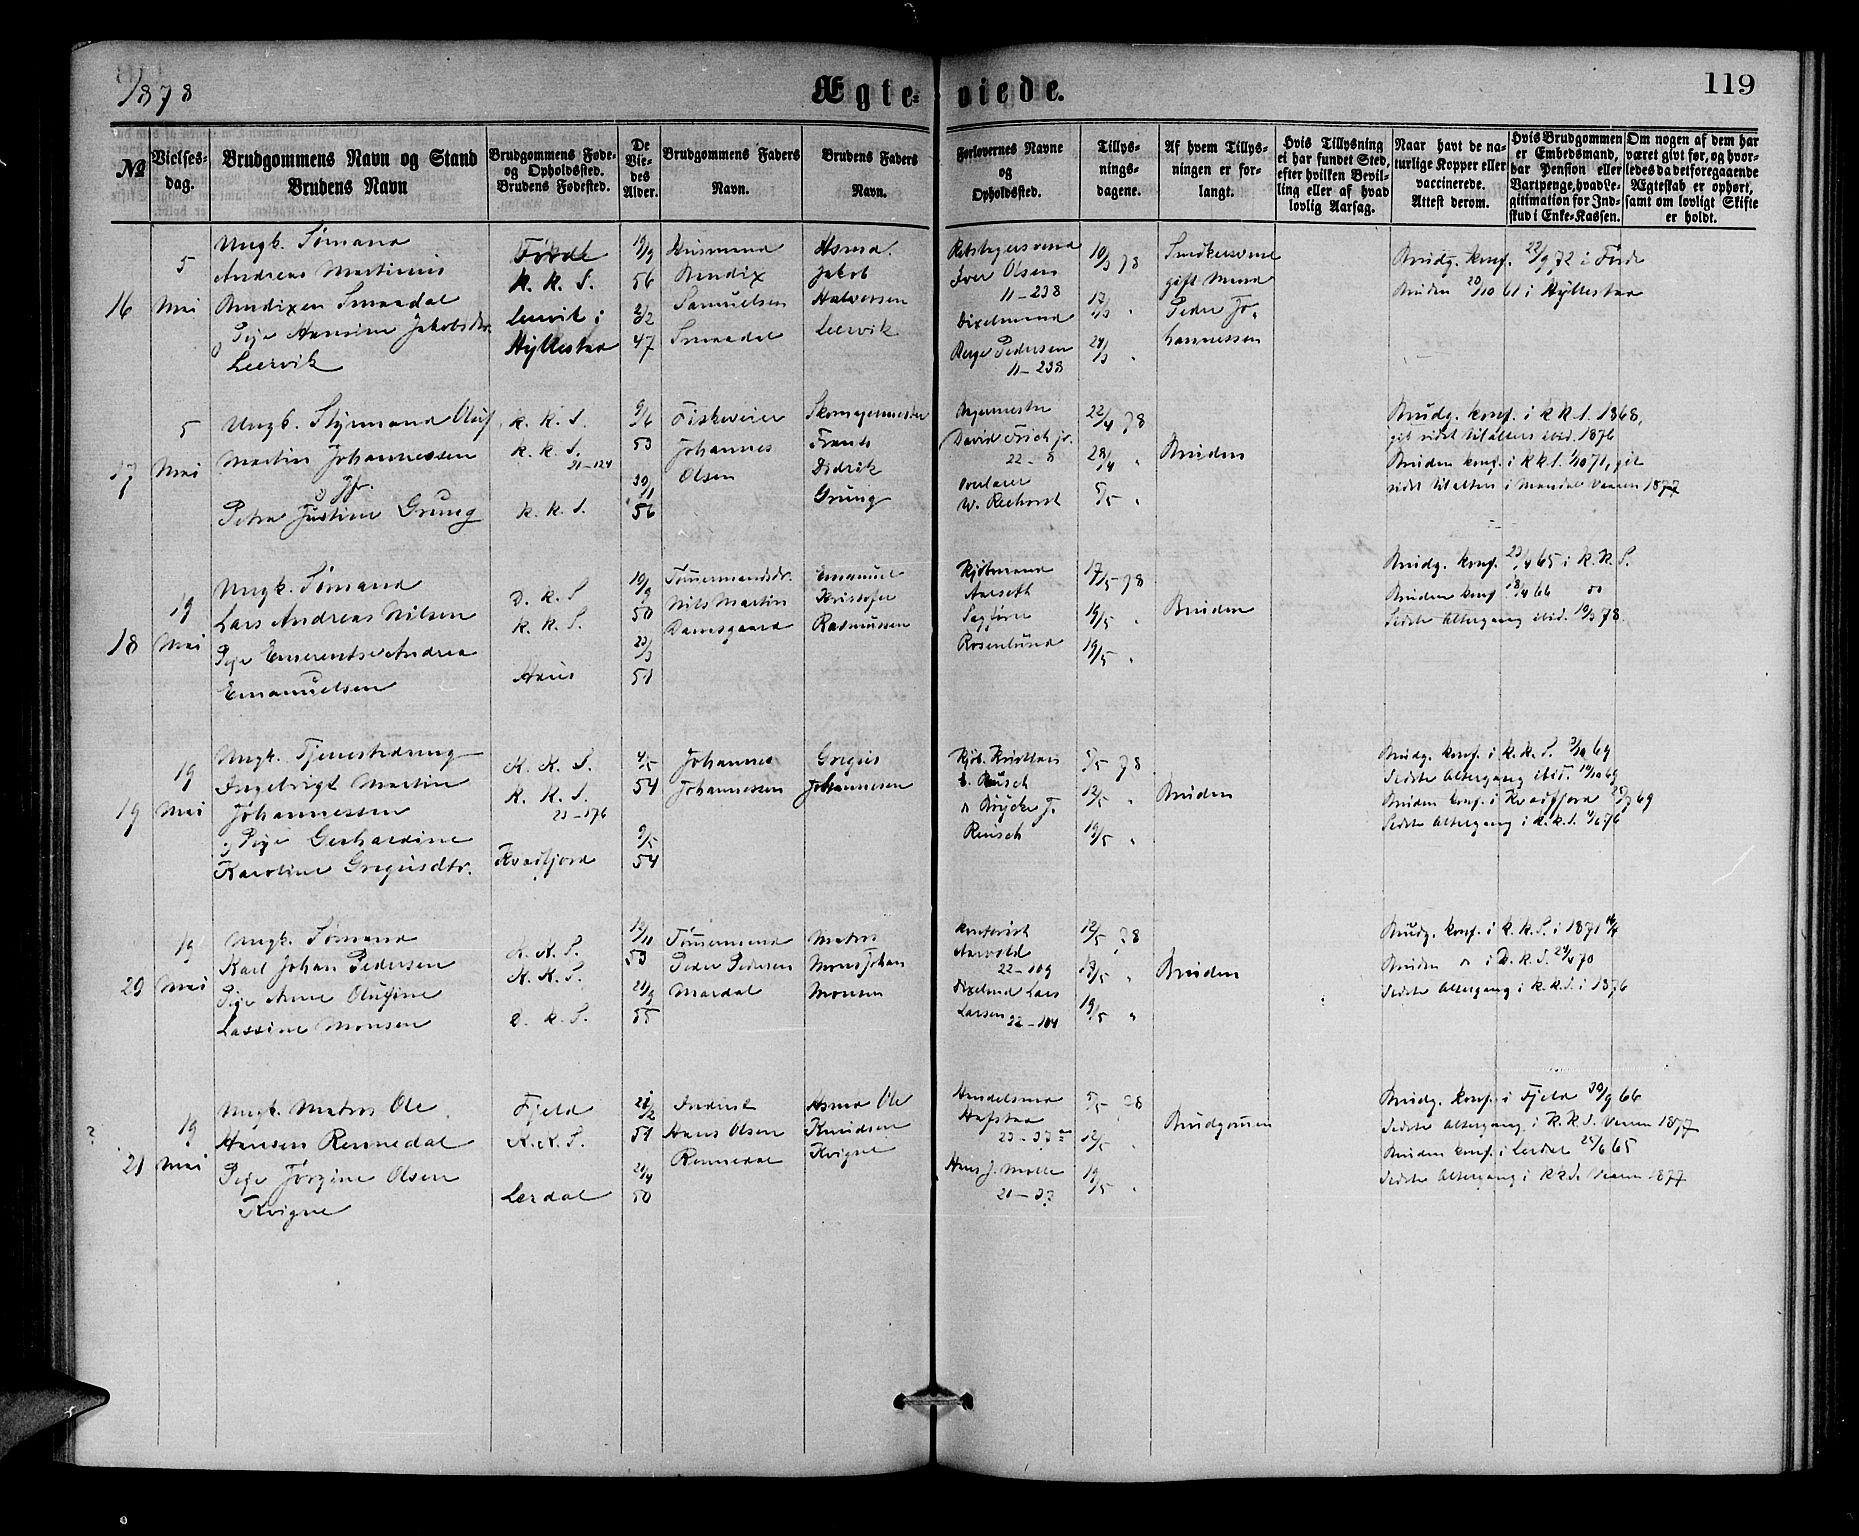 1878
Ægte-viede.
119
No
Vielses-
dag.
Brudgommens Navn og Stand
Brudens Navn
Brudgommens Føde-
og Opholdssted.
Brudens Fødested.
De
Vie-
des
Alder.
Brudgommens Faders
Navn.
Brudens Faders
Navn.
Forlovernes Navne
og
Opholdssted.
Tillys-
nings-
dagene.
Af hvem Tillys-
ningen er for-
langt.
Hvis Tillysning
ei har fundet Sted,
efter hvilken Bevil-
ling eller af hvad
lovlig Aarsag.
Naar havt de na-
turlige Kopper eller
vaccinerede.
Attest derom.
Hvis Brudgommen
er Embedsmand,
har Pension eller
Vartpenge, hvad Le-
gitimation for Ind-
skud i Enke-Kassen.
Om nogen af dem har
været givt før, og hvor-
ledes da det foregaaende
Ægteskab er ophørt,
samt om lovligt Skifte
er holdt.
16
5
Mai
Ungk. Sømand
Andreas Martinus
Bendixen Smaadal
Pige Hansine Jakobsdtr.
Leervik
Førde
K. K. S.
Leervik i
Hyllestad
19/9
56
2/12
47
Husmand
Bendix
Samuelsen
Smaadal
Husmd.
Jakob
Halvorsen
Leervik
Rebslagersvend
Iver Olsen
11-238
Dixelmand
Berge Pedersen
11-238
10/3 78
17/3 "
24/3 "
Snedkersvend
gift Mand
Peder Jo-
hannessen
Brudg. konf. 22/9 72 i Førde
Bruden 20/10 61 i Hyllestad
17
5
Mai
Ungk. Styrmand Oluf
Martin Johannessen
Jfr.
Petra Justine Grung
K. K. S.
K. K. S.
21-124
K. K. S.
9/6
53
30/1
56
Fiskeveier
Johannes
Olsen
Skomagermester
Frants
Didrik
Grung
Bagermester
David Frich jr.
22-8
Overlærer
W. Reehorst
22/4 78
28/4 "
5/5 "
Bruden
Brudg. konf. i K K S. 1868,
git sidst til alters ibid. 1876
Bruden konf. i K K S. 1/10 71, git
sidst til alters i Mandal Vaaren 1877
18
19
Mai
Ungk. Sømand
Lars Andreas Nilsen
Pige Emerentse Andrea
Emanuelsen
D. K. S
K. K. S.
Haus
19/9
50
23/3
51
Tømmermandsdr.
Nils Martin
Damsgaard
Emanuel
Kristofer
Rasmussen
Kjøbmand
Aarseth
Sagfører
Rosenlund
17/5 78
19/5 "
19/5 "
Bruden
Brudg. konf. 23/4 65 i K. K. S.
Bruden konf 18/4 66 do
Sidste Altergang ibid. 10/3 78.
19
19
Mai
Ungk. Tjenestedreng
Ingebrigt Martin
Johannessen
Pige Gerhardine
Karoline Gregusdtr.
K. K. S.
K. K. S.
21-176
Kvadfjord
4/5
54
9/5
54
Johannes
Johannessen
Gregus
Johannesen
Kjøb. Kristian
B. Reusch
Reusch
5/5 78
12/5 "
19/5 "
Bruden
Brudg. konf. i K. K. S. 3/10 69
Sidste Altergang ibid. 10/10 69
Bruden konf. i Kvadfjord 25/7 69
Sidste Altergang i K. K. S. 4/6 76
20
19
Mai
Ungk. Sømand
Karl Johan Pedersen
Pige Anne Olufine
Lassine Monsen
K. K. S.
K. K. S.
D. K. S.
12/11
53
24/9
55
Tømmermand
Peder Pedersen
Mardal
Matros
Mons Johan
Monsen
Kontorist
Aarvold
22-109
Dixelmd Lars
Larsen 22-104
12/5 78
13/5 "
19/5 "
Bruden
Brudg. konf. i K. K. S. i 1871
Bruden " i D. K. S. 24/4 70
Sidste Altergang i K. K. S. i 1876
?
21
19
Mai
Ungk. Matros Ole
Hansen Rennedal
Pige Jørgine Olsen
Kvigne
Fjeld
K. K. S.
Lerdal
21/2
51
21/4
50
Inderst
Hans Olsen
Rennedal
Husmd Ole
Knudsen
Kvigne
Handelsmd
Hafstad
Hans J. Molle
21-37
5/5 78
12/5 "
19/5 "
Brudgommen
Brudg. konf. i Fjeld 30/9 66
Sidste Altergang i K. K. S. Vaaren 1877
Bruden konf. i Lerdal 25/6 65
Sidste Altergang i K K S. Vaaren 1877